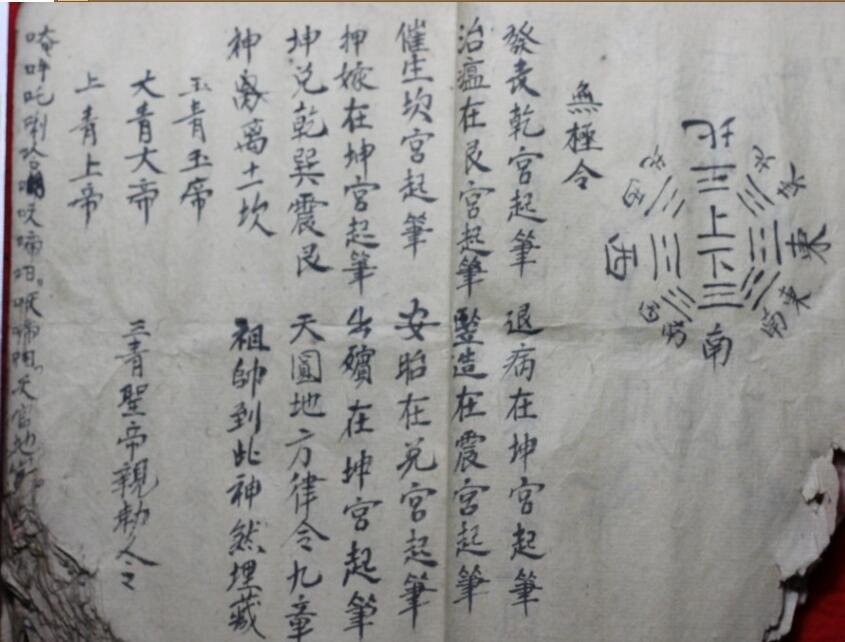 北
上
下
南
東
西
東
北
西
北
東
南
西
南
無極令
發喪乾宮起筆 退病在坤宮起筆
治瘟在艮宮起筆 豎造在震宮起筆
催生坎宮起筆 安胎在兌宮起筆
押嫁在坤宮起筆 出殯在坤宮起筆
坤兌乾巽震艮 天圓地方律令九章
神離土坎 祖帥到此神然埋藏
玉青玉帝
大青大帝 三青聖帝親勅令々
上青上帝
唵吽吒唎